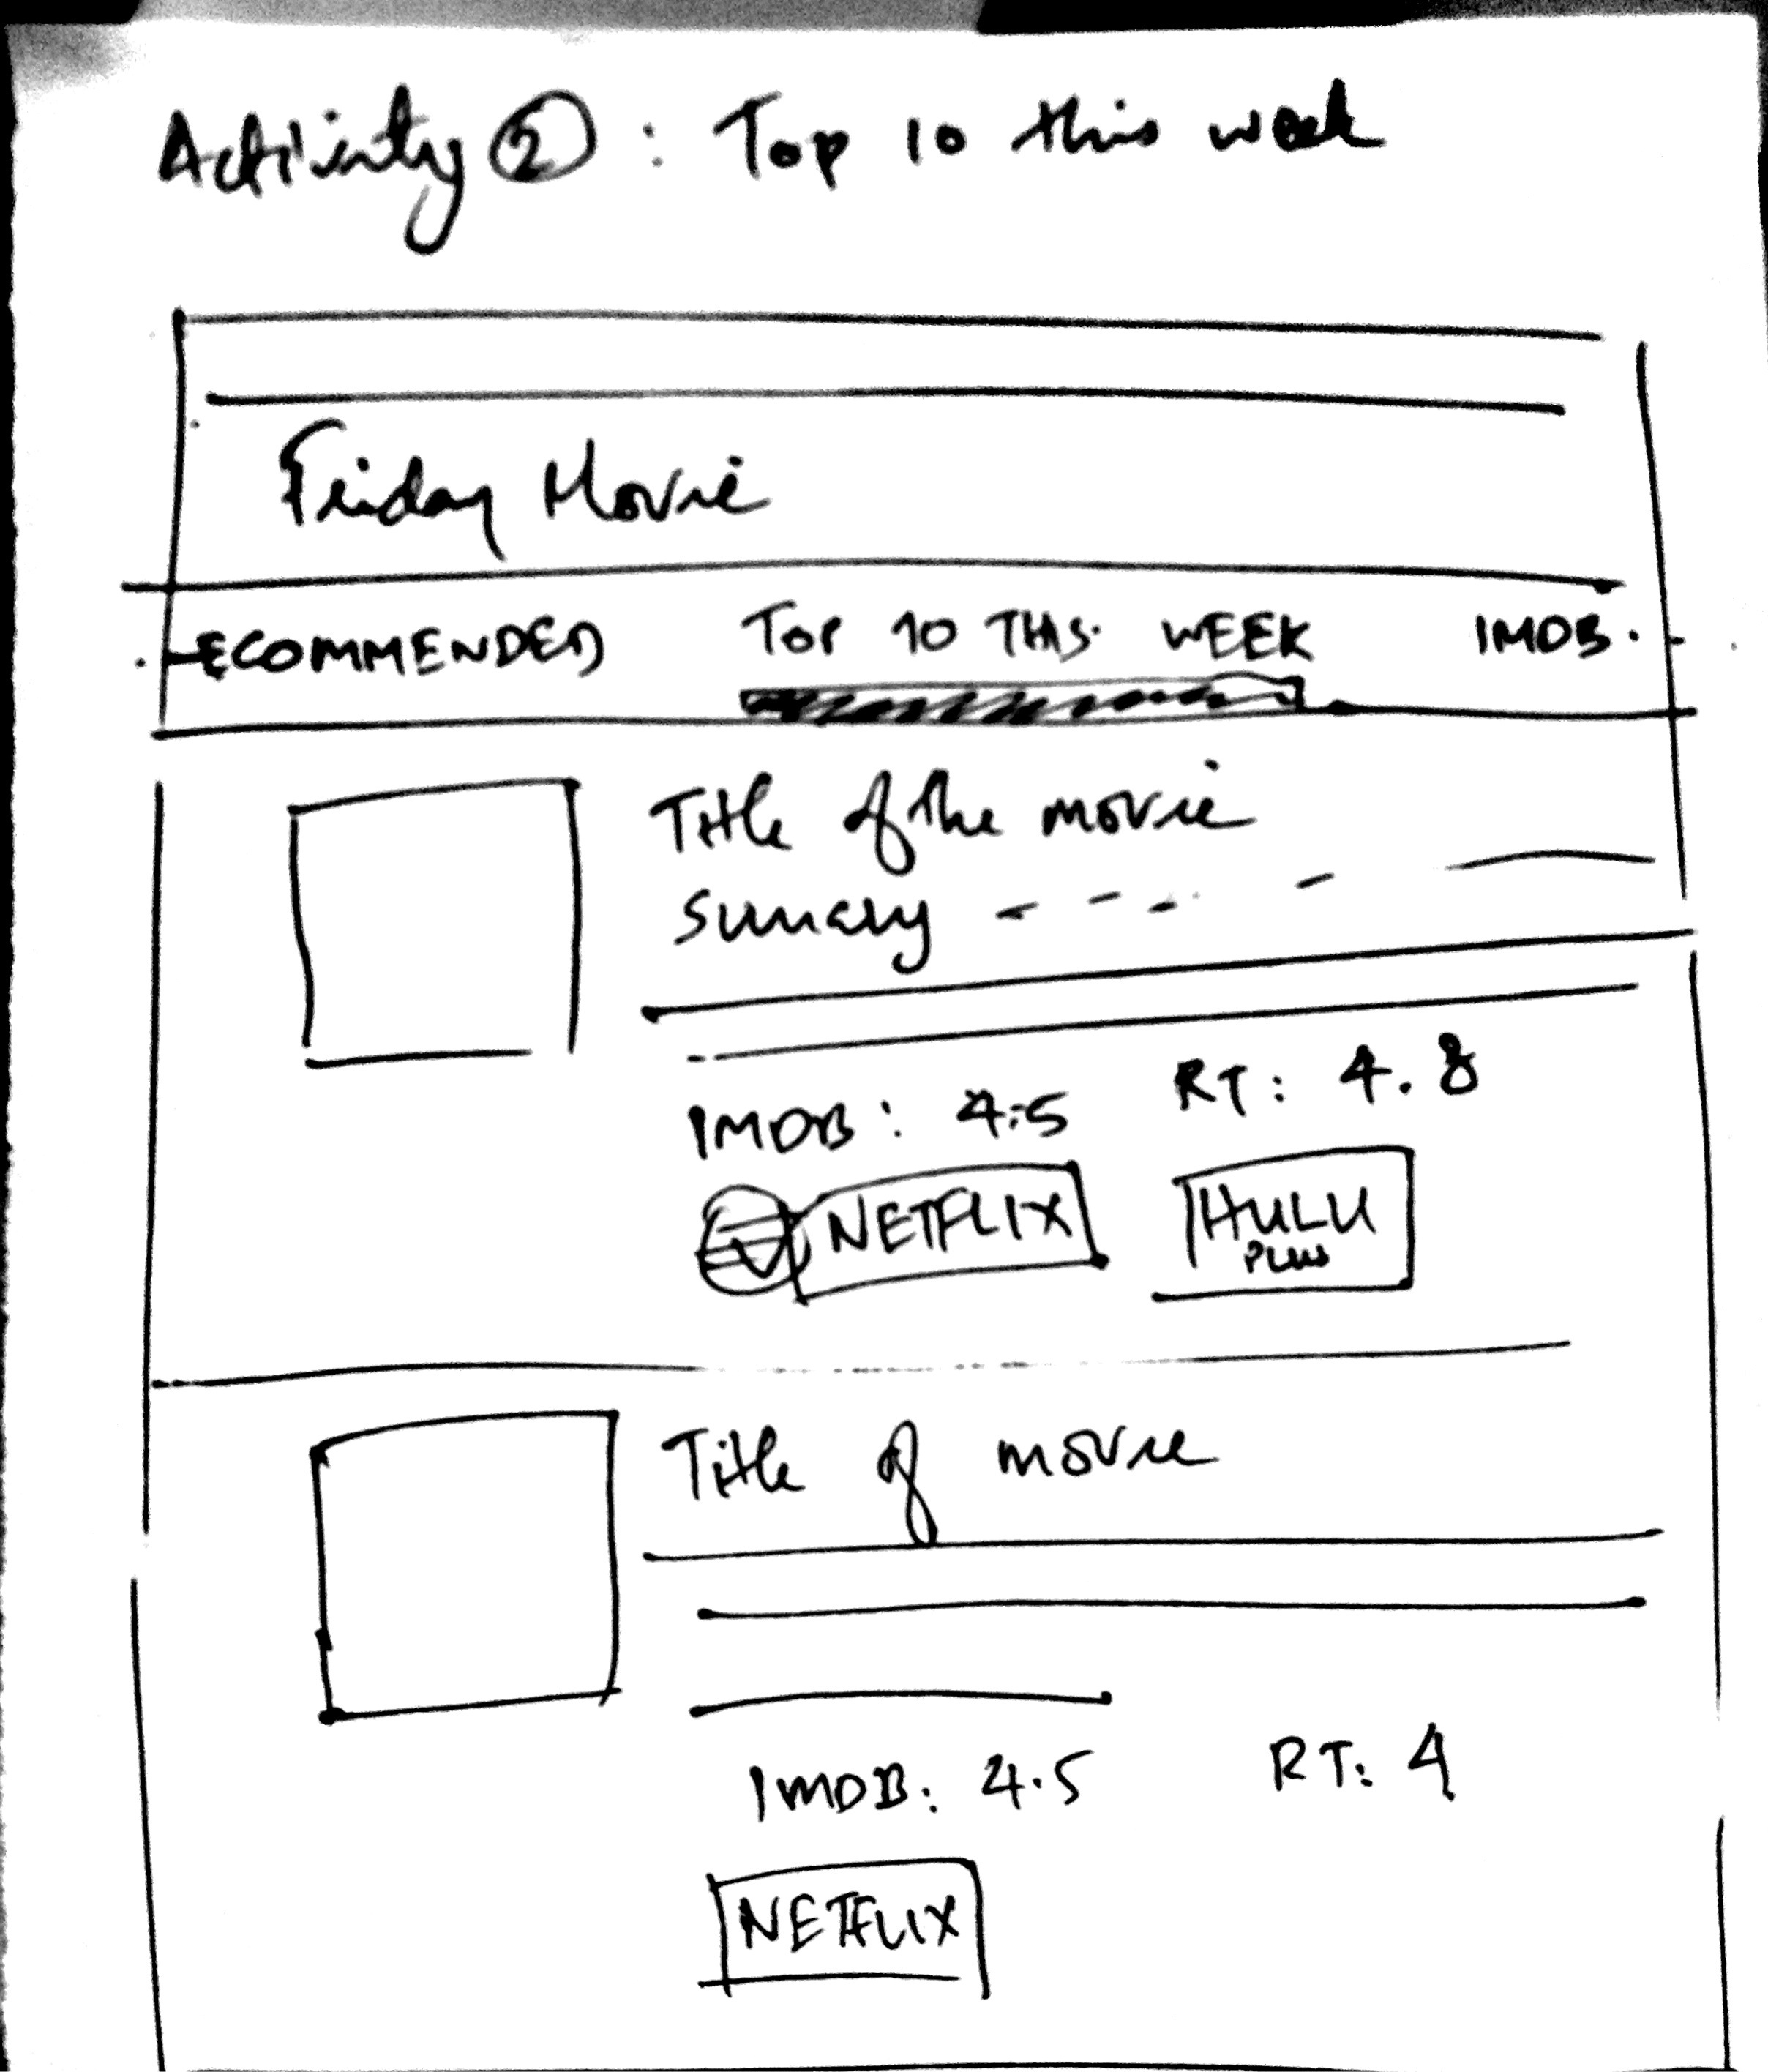 Activity ② : Top 10 this week
Friday Movie
ECOMMENDED TOP 10 THIS WEEK IMDB.
Title of the movie
Summary - - - -
IMDB : 4.5 RT : 4.8
NETFLIX HULU
PLUS
Title of movie
IMDB : 4.5 RT : 4
NETFLIX